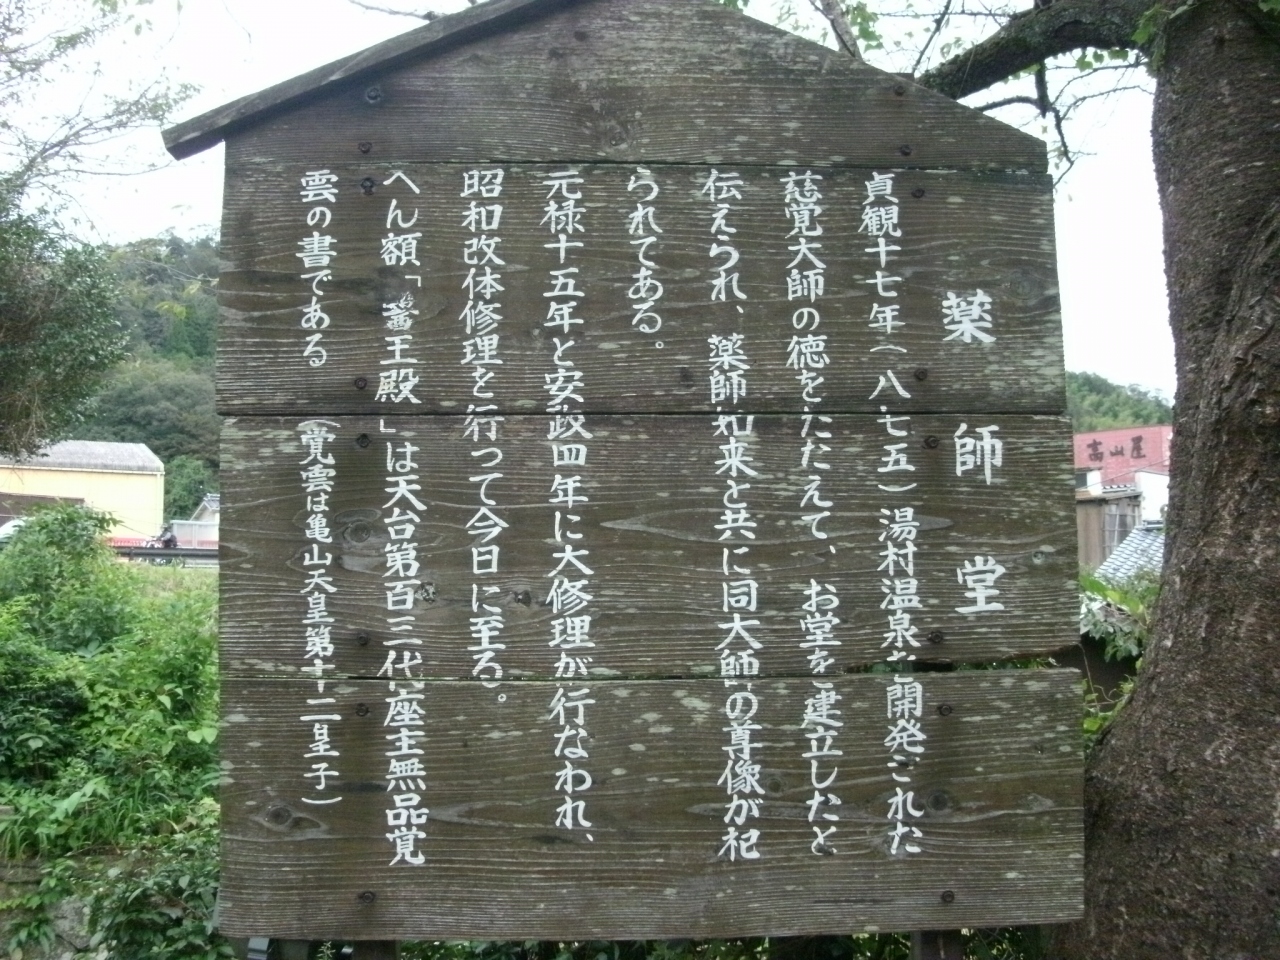 薬師堂
貞観十七年（八七五）湯村温泉を開発された
慈覚大師の徳をたたえて、お堂を建立したと
伝えられ、薬師如来と共に同大師の尊像が祀
られてある。
元禄十五年と安政四年に大修理が行なわれ、
昭和改体修理を行って今日に至る。
へん額「醫王殿」は天台第百三代座主無品覚
雲の書である
（覚雲は亀山天皇第十二皇子）
高山屋